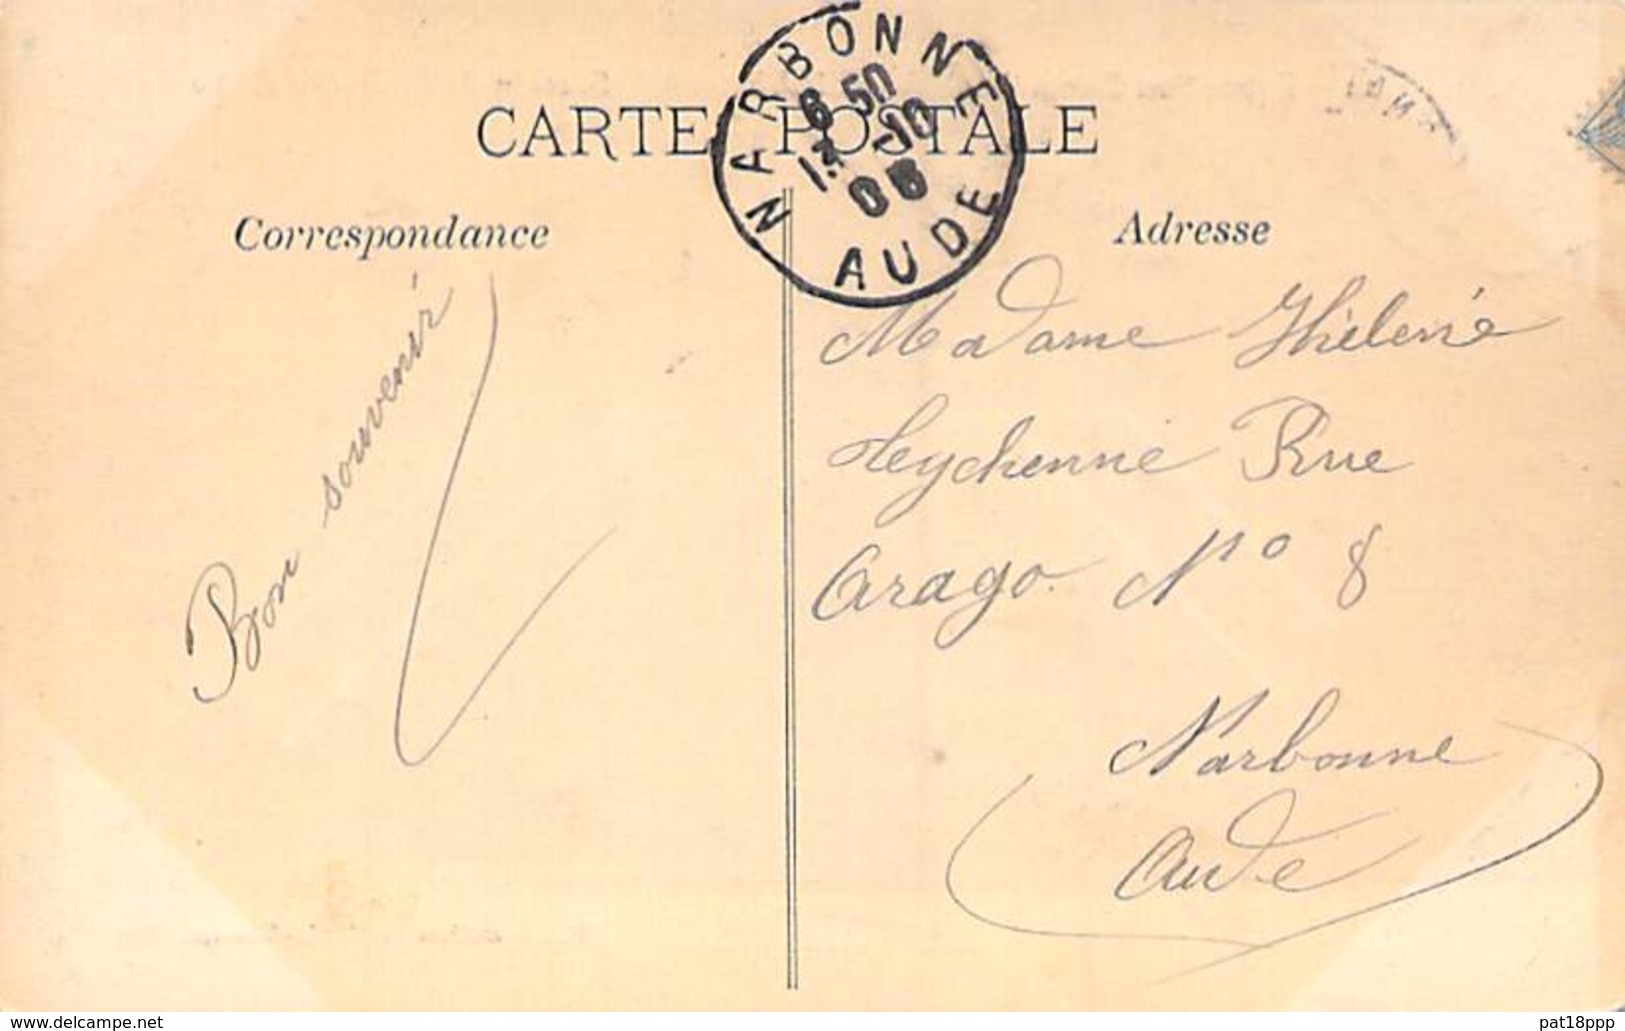 NARBONNE
6 50
-10
AUDE
CARTE POSTALE
Correspondance
Adresse
Bon souvenir
Madame
Rue
Arago N° 8
Narbonne
Aude
www.delcampe.net
pat18ppp